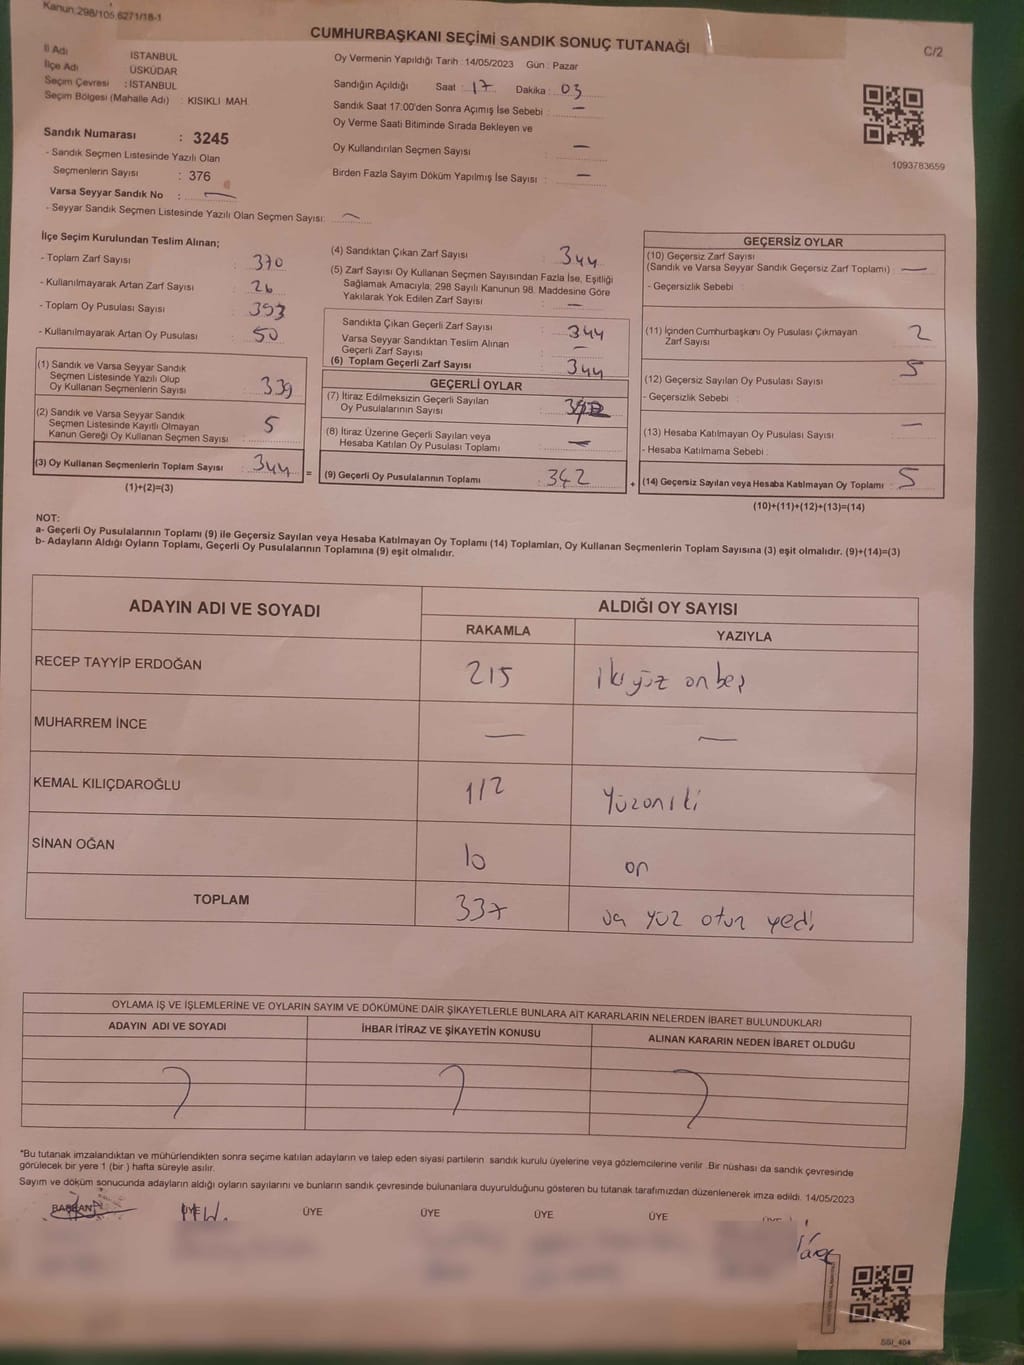 Kanun:298/105,6271/18-1
CUMHURBAŞKANI SEÇİMİ SANDIK SONUÇ TUTANAĞI
C/2
İl Adı İSTANBUL
İlçe Adı ÜSKÜDAR
Seçim Çevresi : İSTANBUL
Seçim Bölgesi (Mahalle Adı) : KISIKLI MAH.
Oy Vermenin Yapıldığı Tarih : 14/05/2023 Gün : Pazar
Sandığın Açıldığı Saat : 17 Dakika : 03
Sandık Saat 17:00'den Sonra Açımış İse Sebebi : —
Oy Verme Saati Bitiminde Sırada Bekleyen ve
Oy Kullandırılan Seçmen Sayısı : —
Birden Fazla Sayım Döküm Yapılmış İse Sayısı : —
1093783659
Sandık Numarası : 3245
- Sandık Seçmen Listesinde Yazılı Olan
Seçmenlerin Sayısı : 376
Varsa Seyyar Sandık No : —
- Seyyar Sandık Seçmen Listesinde Yazılı Olan Seçmen Sayısı: —
İlçe Seçim Kurulundan Teslim Alınan;
- Toplam Zarf Sayısı : 370
- Kullanılmayarak Artan Zarf Sayısı : 26
- Toplam Oy Pusulası Sayısı : 393
- Kullanılmayarak Artan Oy Pusulası : 50
(1) Sandık ve Varsa Seyyar Sandık
Seçmen Listesinde Yazılı Olup
Oy Kullanan Seçmenlerin Sayısı : 339
(2) Sandık ve Varsa Seyyar Sandık
Seçmen Listesinde Kayıtlı Olmayan
Kanun Gereği Oy Kullanan Seçmen Sayısı : 5
(3) Oy Kullanan Seçmenlerin Toplam Sayısı : 344
(1)+(2)=(3)
=
(4) Sandıktan Çıkan Zarf Sayısı : 344
(5) Zarf Sayısı Oy Kullanan Seçmen Sayısından Fazla İse, Eşitliği
Sağlamak Amacıyla; 298 Sayılı Kanunun 98. Maddesine Göre
Yakılarak Yok Edilen Zarf Sayısı : —
Sandıkta Çıkan Geçerli Zarf Sayısı : 344
Varsa Seyyar Sandıktan Teslim Alınan
Geçerli Zarf Sayısı : —
(6) Toplam Geçerli Zarf Sayısı : 344
GEÇERLİ OYLAR
(7) İtiraz Edilmeksizin Geçerli Sayılan
Oy Pusulalarının Sayısı :
(8) İtiraz Üzerine Geçerli Sayılan veya
Hesaba Katılan Oy Pusulası Toplamı : —
(9) Geçerli Oy Pusulalarının Toplamı : 342
+
GEÇERSİZ OYLAR
(10) Geçersiz Zarf Sayısı
(Sandık ve Varsa Seyyar Sandık Geçersiz Zarf Toplamı) : —
- Geçersizlik Sebebi :
(11) İçinden Cumhurbaşkanı Oy Pusulası Çıkmayan
Zarf Sayısı : 2
(12) Geçersiz Sayılan Oy Pusulası Sayısı : 5
- Geçersizlik Sebebi :
(13) Hesaba Katılmayan Oy Pusulası Sayısı : —
- Hesaba Katılmama Sebebi :
(14) Geçersiz Sayılan veya Hesaba Katılmayan Oy Toplamı : 5
(10)+(11)+(12)+(13)=(14)
NOT:
a- Geçerli Oy Pusulalarının Toplamı (9) ile Geçersiz Sayılan veya Hesaba Katılmayan Oy Toplamı (14) Toplamları, Oy Kullanan Seçmenlerin Toplam Sayısına (3) eşit olmalıdır. (9)+(14)=(3)
b- Adayların Aldığı Oyların Toplamı, Geçerli Oy Pusulalarının Toplamına (9) eşit olmalıdır.
ADAYIN ADI VE SOYADI
ALDIĞI OY SAYISI
RAKAMLA YAZIYLA
RECEP TAYYİP ERDOĞAN 215 iki yüz on beş
MUHARREM İNCE — —
KEMAL KILIÇDAROĞLU 112 yüzoniki
SİNAN OĞAN 10 on
TOPLAM 337 üç yüz otuz yedi
OYLAMA İŞ VE İŞLEMLERİNE VE OYLARIN SAYIM VE DÖKÜMÜNE DAİR ŞİKAYETLERLE BUNLARA AİT KARARLARIN NELERDEN İBARET BULUNDUKLARI
ADAYIN ADI VE SOYADI İHBAR İTİRAZ VE ŞİKAYETİN KONUSU ALINAN KARARIN NEDEN İBARET OLDUĞU
*Bu tutanak imzalandıktan ve mühürlendikten sonra seçime katılan adayların ve talep eden siyasi partilerin sandık kurulu üyelerine veya gözlemcilerine verilir. Bir nüshası da sandık çevresinde
görülecek bir yere 1 (bir ) hafta süreyle asılır.
Sayım ve döküm sonucunda adayların aldığı oyların sayılarını ve bunların sandık çevresinde bulunanlara duyurulduğunu gösteren bu tutanak tarafımızdan düzenlenerek imza edildi. 14/05/2023
BAŞKAN ÜYE ÜYE ÜYE ÜYE ÜYE ÜYE
SSI_404